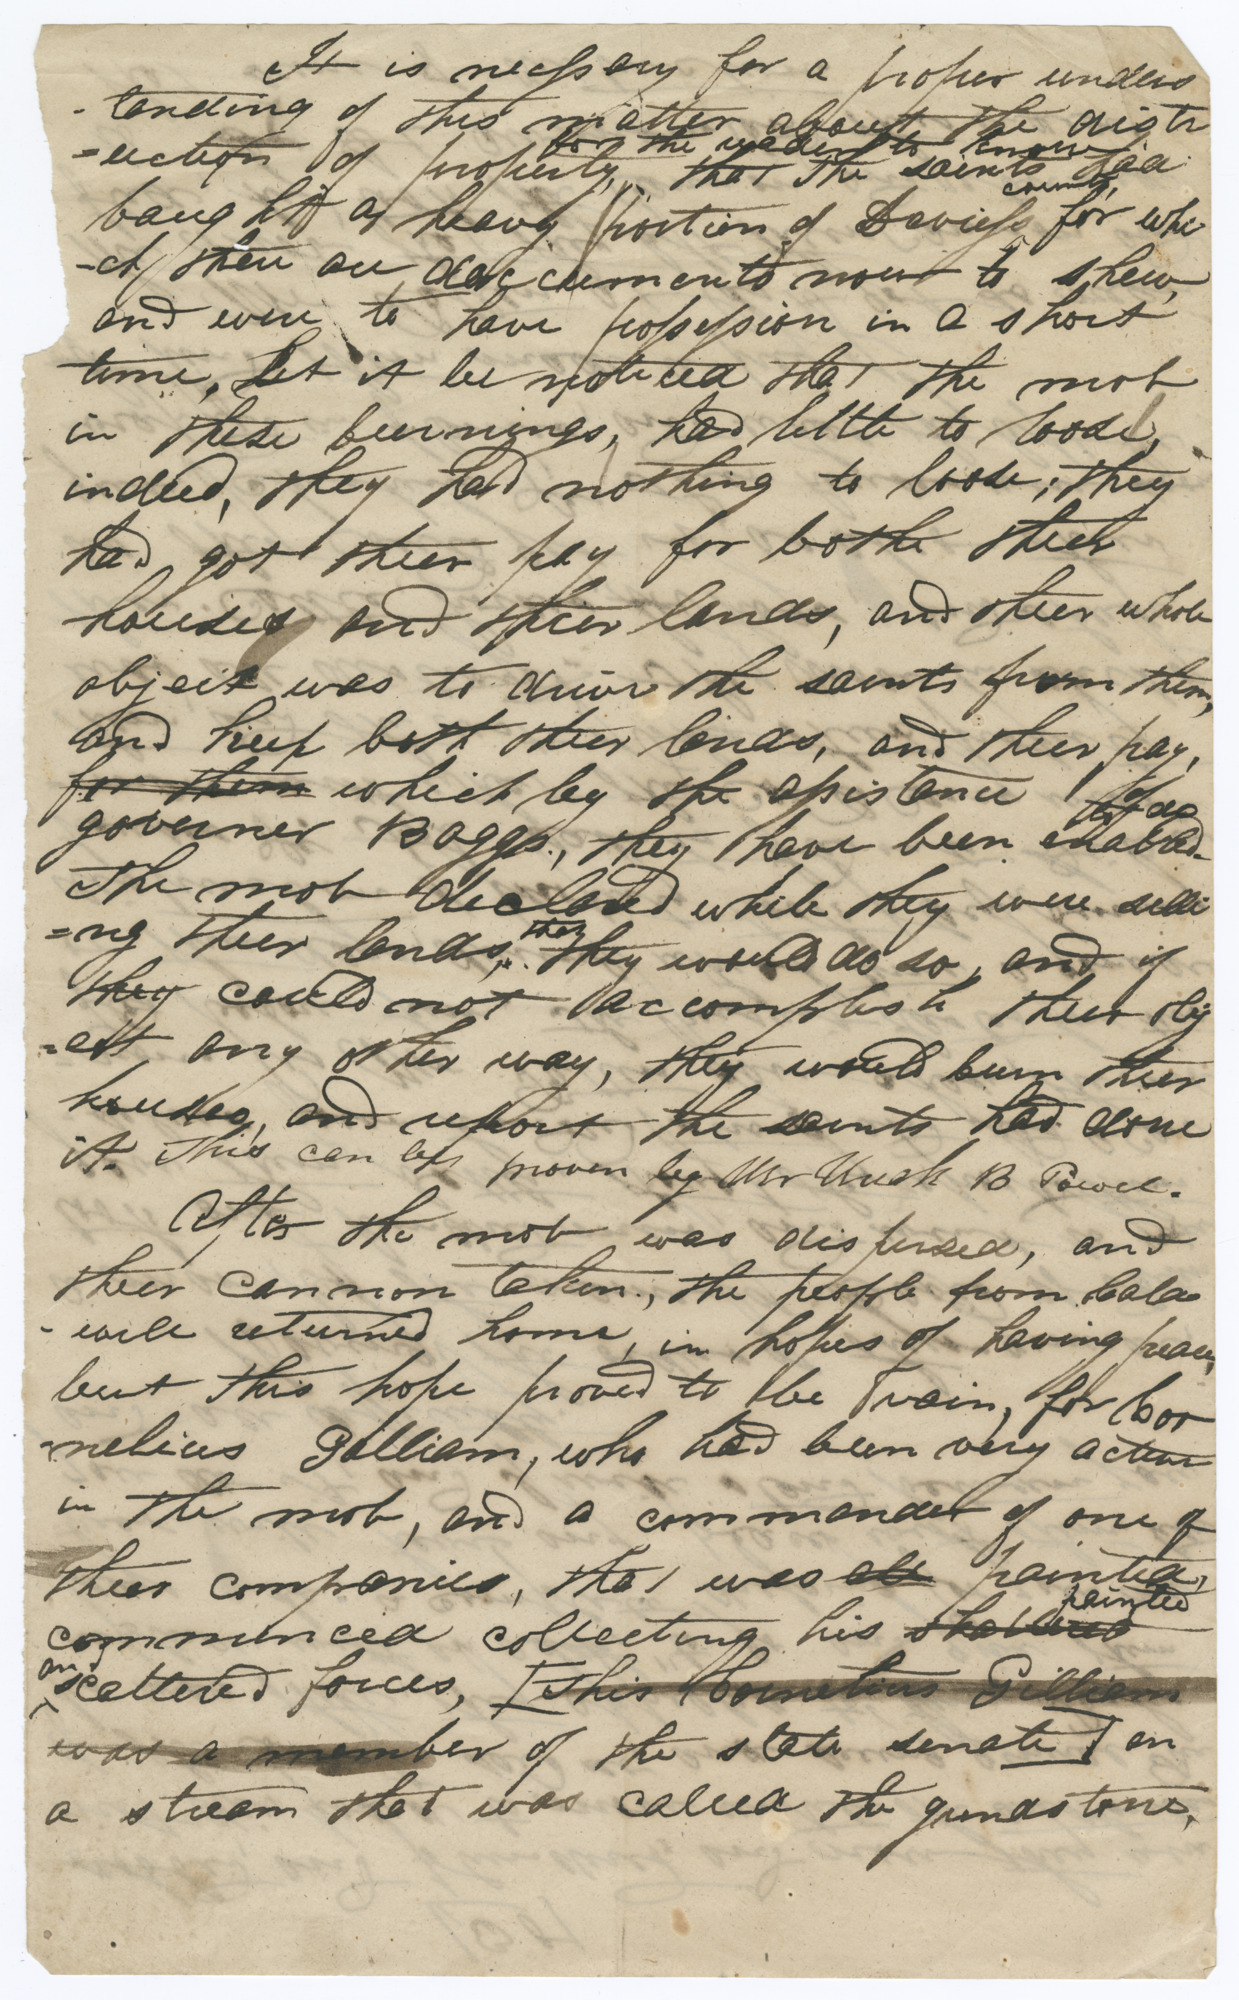 It is necessary for a proper unders
-tanding of this matter about the distr
for the reader to know
=uction of property, that the saints had
county,
baught a heavy portion of Daviess for whi
-ch their are doccuments now to shew,
and were to have possession in a short
time, Let it be noticed that the mob
in these burnings, had little to loose,
indeed, they had nothing to loose; they
had got their pay for bothe their
houses and their lands, and their whole
object was to drive the saints from them,
and keep both their lands, and their pay,
for them which by the assistance of
governer Boggs, they have been enabled
The mob declared while they were selli
that
=ng their lands, they would do so, and if
they could not accomplish their obj
=ect any other way, they would burn their
houses, and report the saints had done
it. This can be proven by Mr Uriah B Powel.
After the mob was dispersed, and
their cannon taken, the people from Cald
-well returned home, in hopes of having peace,
but this hope proved to be vain, for Cor
=nelius Gilliam, who had been very active
in the mob, and a commander of one of
their companies, that was painted,
painted
commenced collecting his
and
scattered forces, [This Cornelius Gilliam
was a member of the state senate] on
a stream that was called the grindstone,